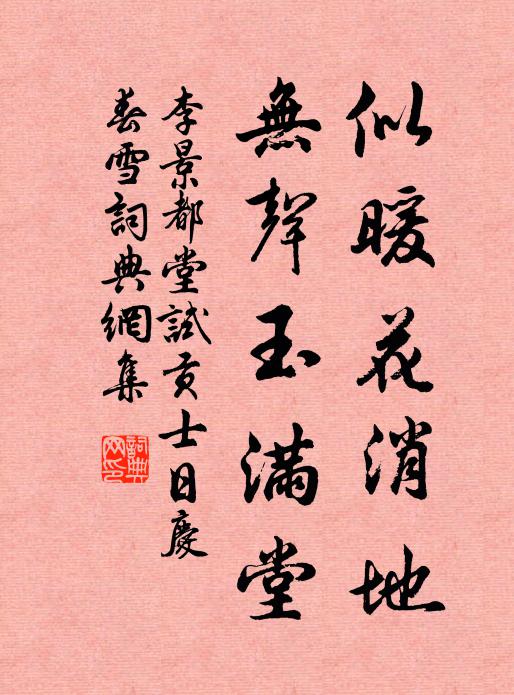 似暖花消地
無聲玉滿堂
李景都堂試貢士日慶
春雪詞典網集
詞典网印